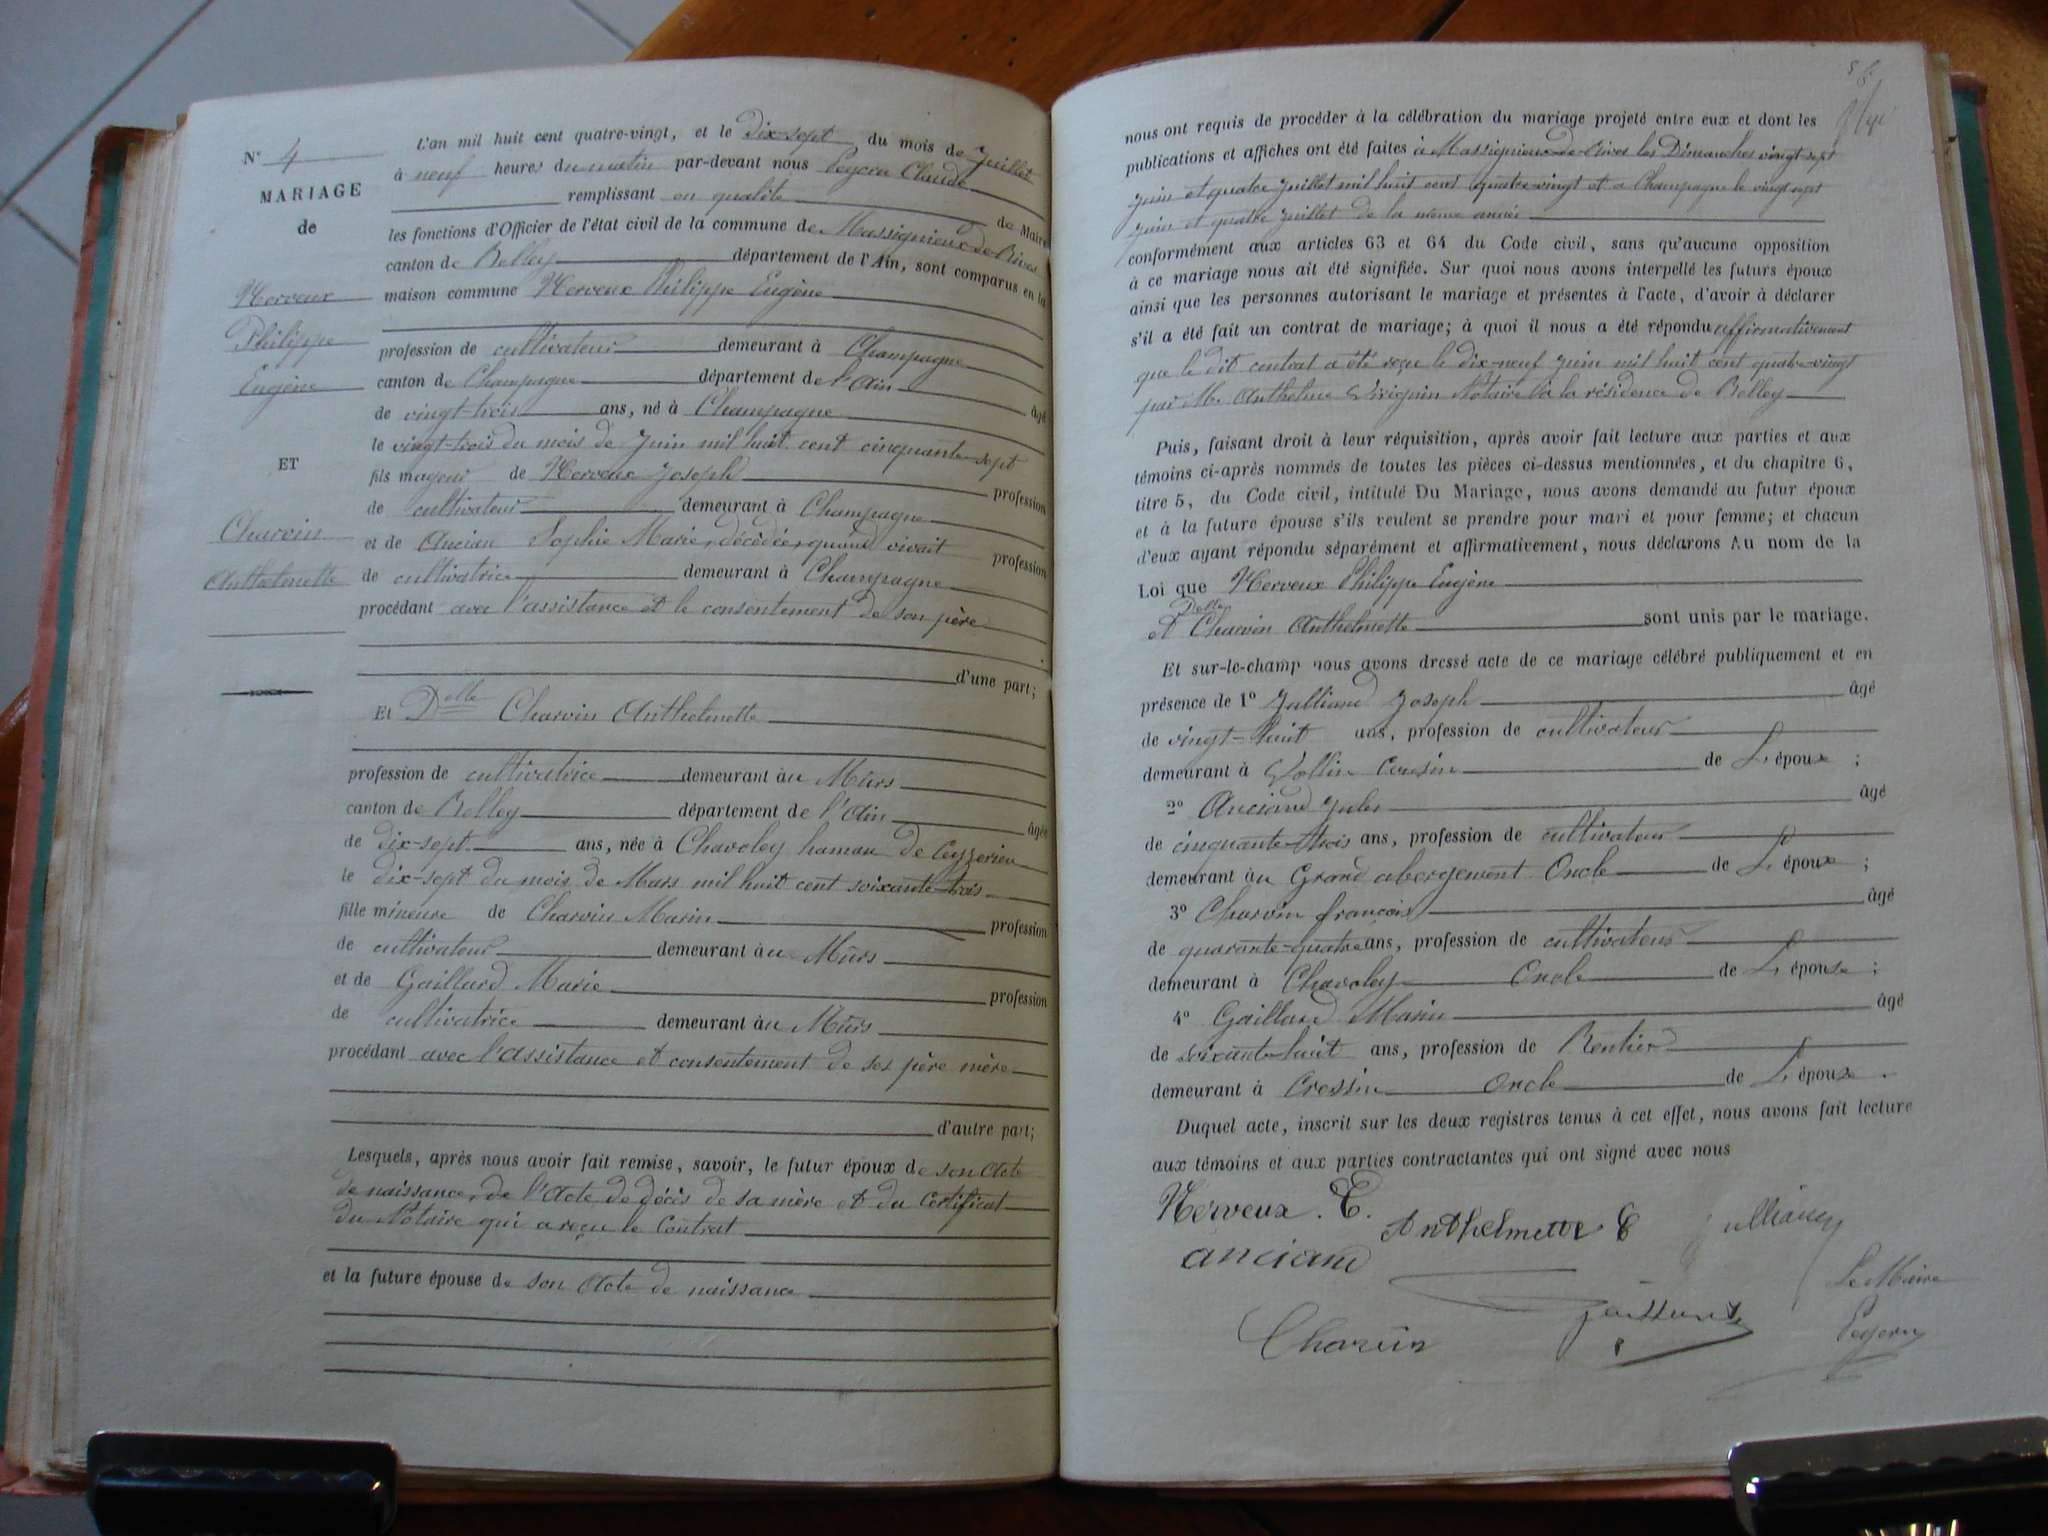 N° 4
MARIAGE
de
Nerveux
Philippe
Eugène
ET
Charvin
Anthelmette
L'an mil huit cent quatre-vingt, et le dix-sept du mois de Juillet
à neuf heures du matin par-devant nous Peyeru Claude
remplissant en qualité de Maire
les fonctions d'Officier de l'état civil de la commune de Massignieux-de-Rives
canton de Belley département de l'Ain, sont comparus en la
maison commune Nerveux Philippe Eugène
profession de cultivateur demeurant à Champagne
canton de Champagne département de l'Ain âgé
de vingt-trois ans, né à Champagne
le vingt-trois du mois de Juin mil huit cent cinquante-sept
fils majeur de Nerveux Joseph profession
de cultivateur demeurant à Champagne
et de Ancian Sophie Marie, décédée, quand vivait profession
de cultivatrice demeurant à Champagne
procédant avec l'assistance et le consentement de son père
d'une part;
Et Delle Charvin Anthelmette
profession de cultivatrice demeurant àu Mûrs
canton de Belley département de l'Ain âgée
de dix-sept ans, née à Chavoley hamau de Ceyzerieu
le dix-sept du mois de Mars mil huit cent soixante-trois
fille mineure de Charvin Marin profession
de cultivateur demeurant àu Mûrs
et de Gaillard Marie profession
de cultivatrice demeurant àu Mûrs
procédant avec l'assistance et consentement de ses père mère
d'autre part;
Lesquels, après nous avoir fait remise, savoir, le futur époux de son Acte
de naissance, de l'Acte de décès de sa mère et du Certificat
du Notaire qui a reçu le Contrat
et la future épouse de son Acte de naissance
nous ont requis de procéder à la célébration du mariage projeté entre eux et dont les
publications et affiches ont été faites à Massignieux-de-Rives les Dimanches vingt-sept
Juin et quatre Juillet mil huit cent quatre-vingt et à Champagne le vingt-sept
Juin et quatre Juillet de la même année
conformément aux articles 63 et 64 du Code civil, sans qu'aucune opposition
à ce mariage nous ait été signifiée. Sur quoi nous avons interpellé les futurs époux
ainsi que les personnes autorisant le mariage et présentes à l'acte, d'avoir à déclarer
s'il a été fait un contrat de mariage; à quoi il nous a été répondu affirmativement
que le dit contrat a été reçu le dix-neuf Juin mil huit cent quatre-vingt
par Me Anthelme Notaire à la résidence de Belley
Puis, faisant droit à leur réquisition, après avoir fait lecture aux parties et aux
témoins ci-après nommés de toutes les pièces ci-dessus mentionnées, et du chapitre 6,
titre 5, du Code civil, intitulé Du Mariage, nous avons demandé au futur époux
et à la future épouse s'ils veulent se prendre pour mari et pour femme; et chacun
d'eux ayant répondu séparément et affirmativement, nous déclarons Au nom de la
Loi que Nerveux Philippe Eugène
et Delle Charvin Anthelmette sont unis par le mariage.
Et sur-le-champ nous avons dressé acte de ce mariage célébré publiquement et en
présence de 1° Julliand Joseph âgé
de vingt-huit ans, profession de cultivateur
demeurant à Vollin cousin de L'époux ;
2° Anciand Jules âgé
de cinquante-trois ans, profession de cultivateur
demeurant àu Grand abergement Oncle de L'époux ;
3° Charvin françois âgé
de quarante-quatre ans, profession de cultivateur
demeurant à Chavoley Oncle de L'épouse ;
4° Gaillard Marin âgé
de soixante-huit ans, profession de Rentier
demeurant à Cressin Oncle de L'épouse .
Duquel acte, inscrit sur les deux registres tenus à cet effet, nous avons fait lecture
aux témoins et aux parties contractantes qui ont signé avec nous
Nerveux . E. Anthelmette C Julliand
anciand
Le Maire
Gaillard
Charvin Peyeru